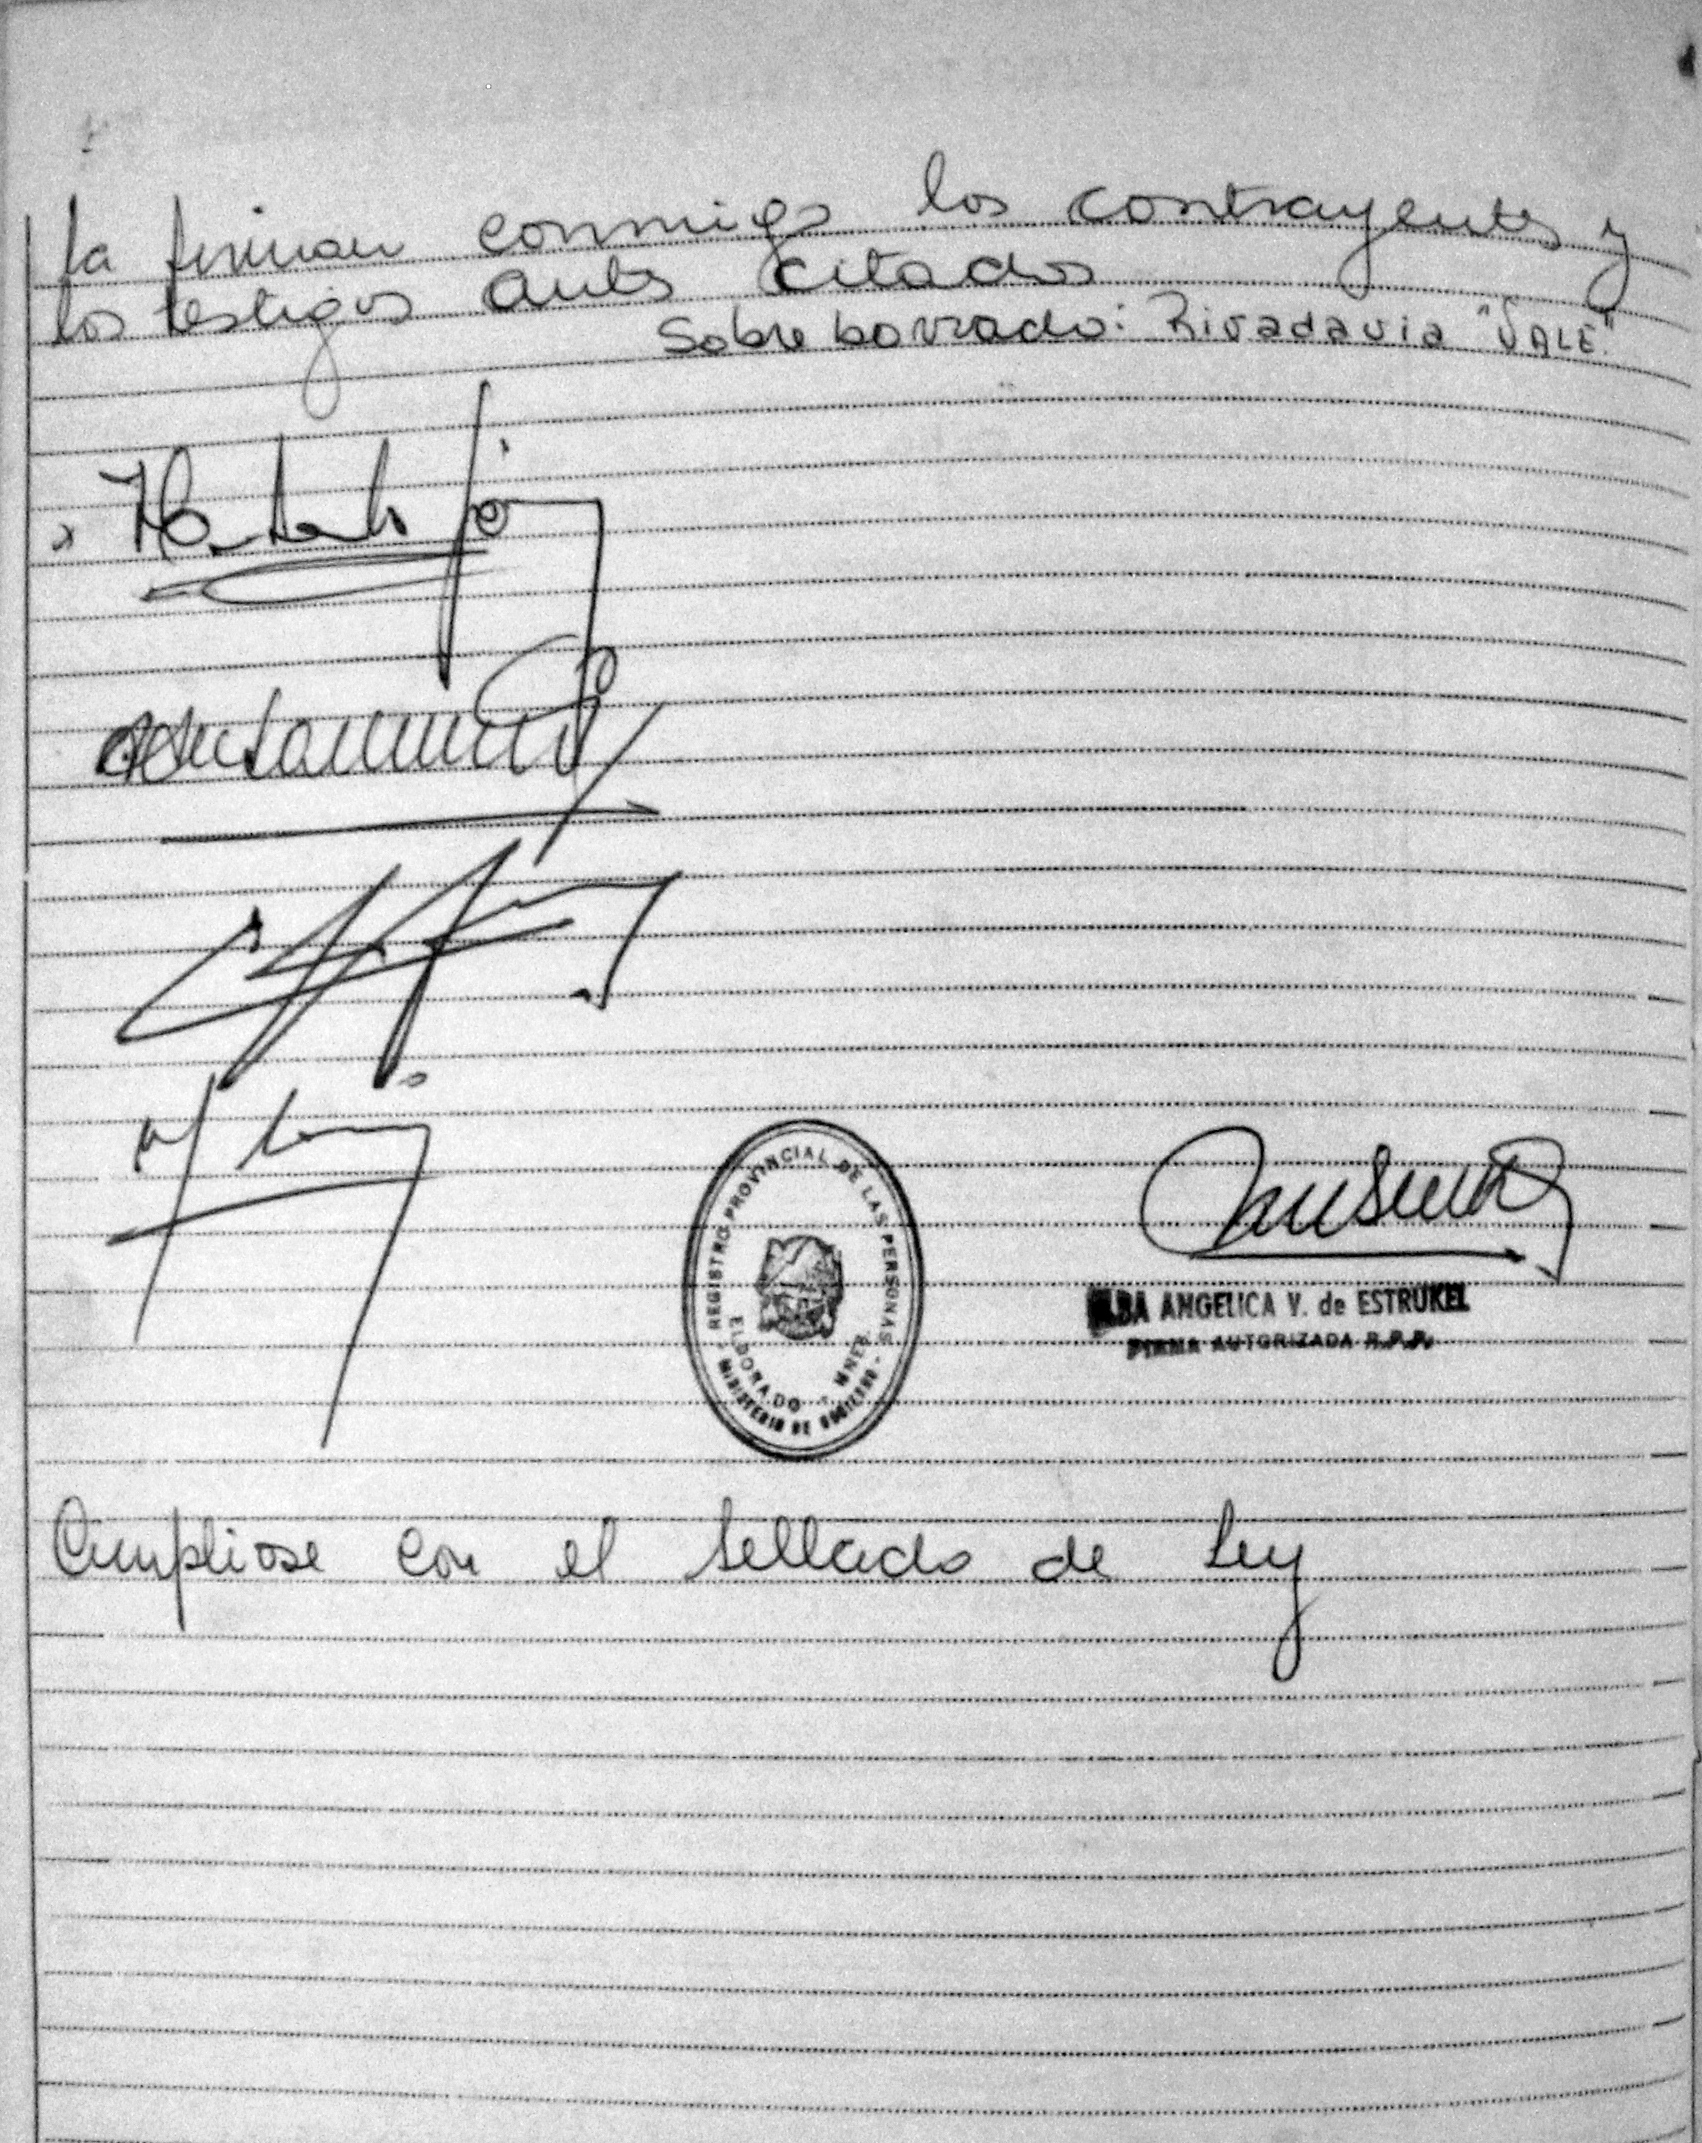 la firman conmigo los contrayentes y
los testigos antes citados
Sobre borrado: Rivadavia "VALE".
REGISTRO PROVINCIAL DE LAS PERSONAS
ELDORADO - MNES.
- MINISTERIO DE GOBIERNO -
ANGELICA V. de ESTRUKEL
FIRMA AUTORIZADA R.P.P.
Cumpliose con el sellado de Ley